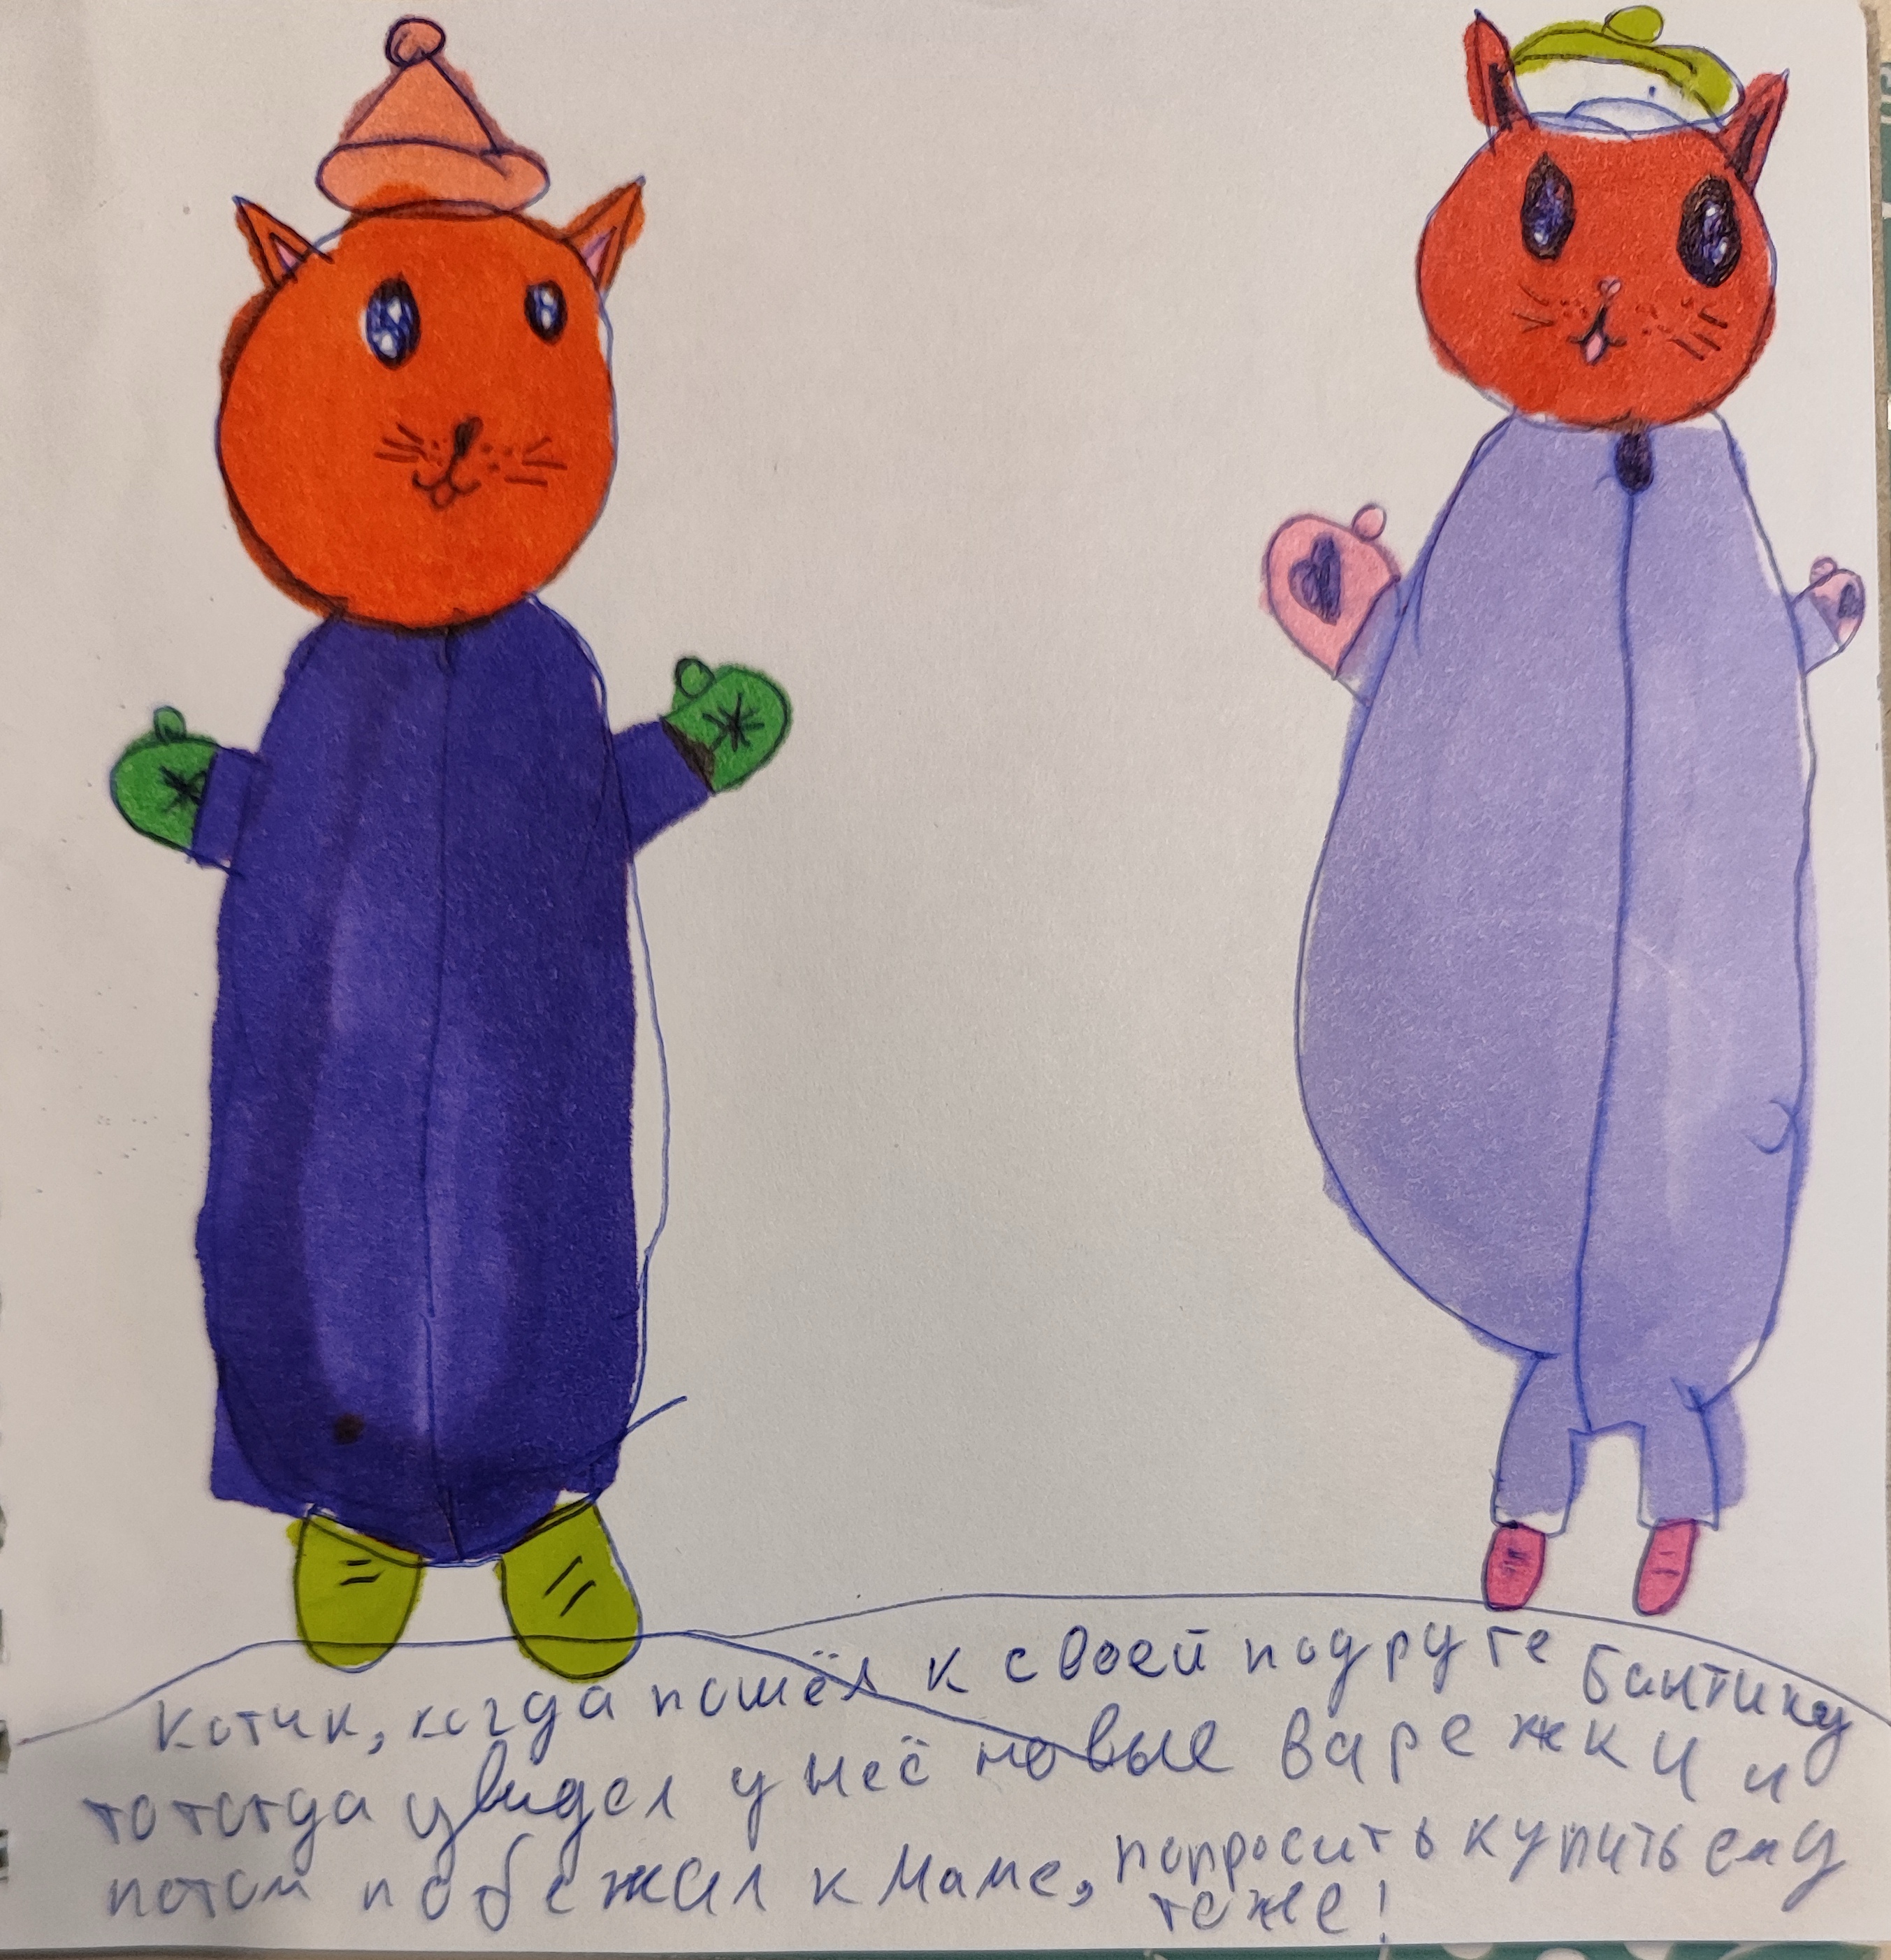 Котик, когда пошёл к своей подруге Бантику
то тогда увидел у неё новые варежки и
потом побежал к маме, попросить купить ему
тоже!